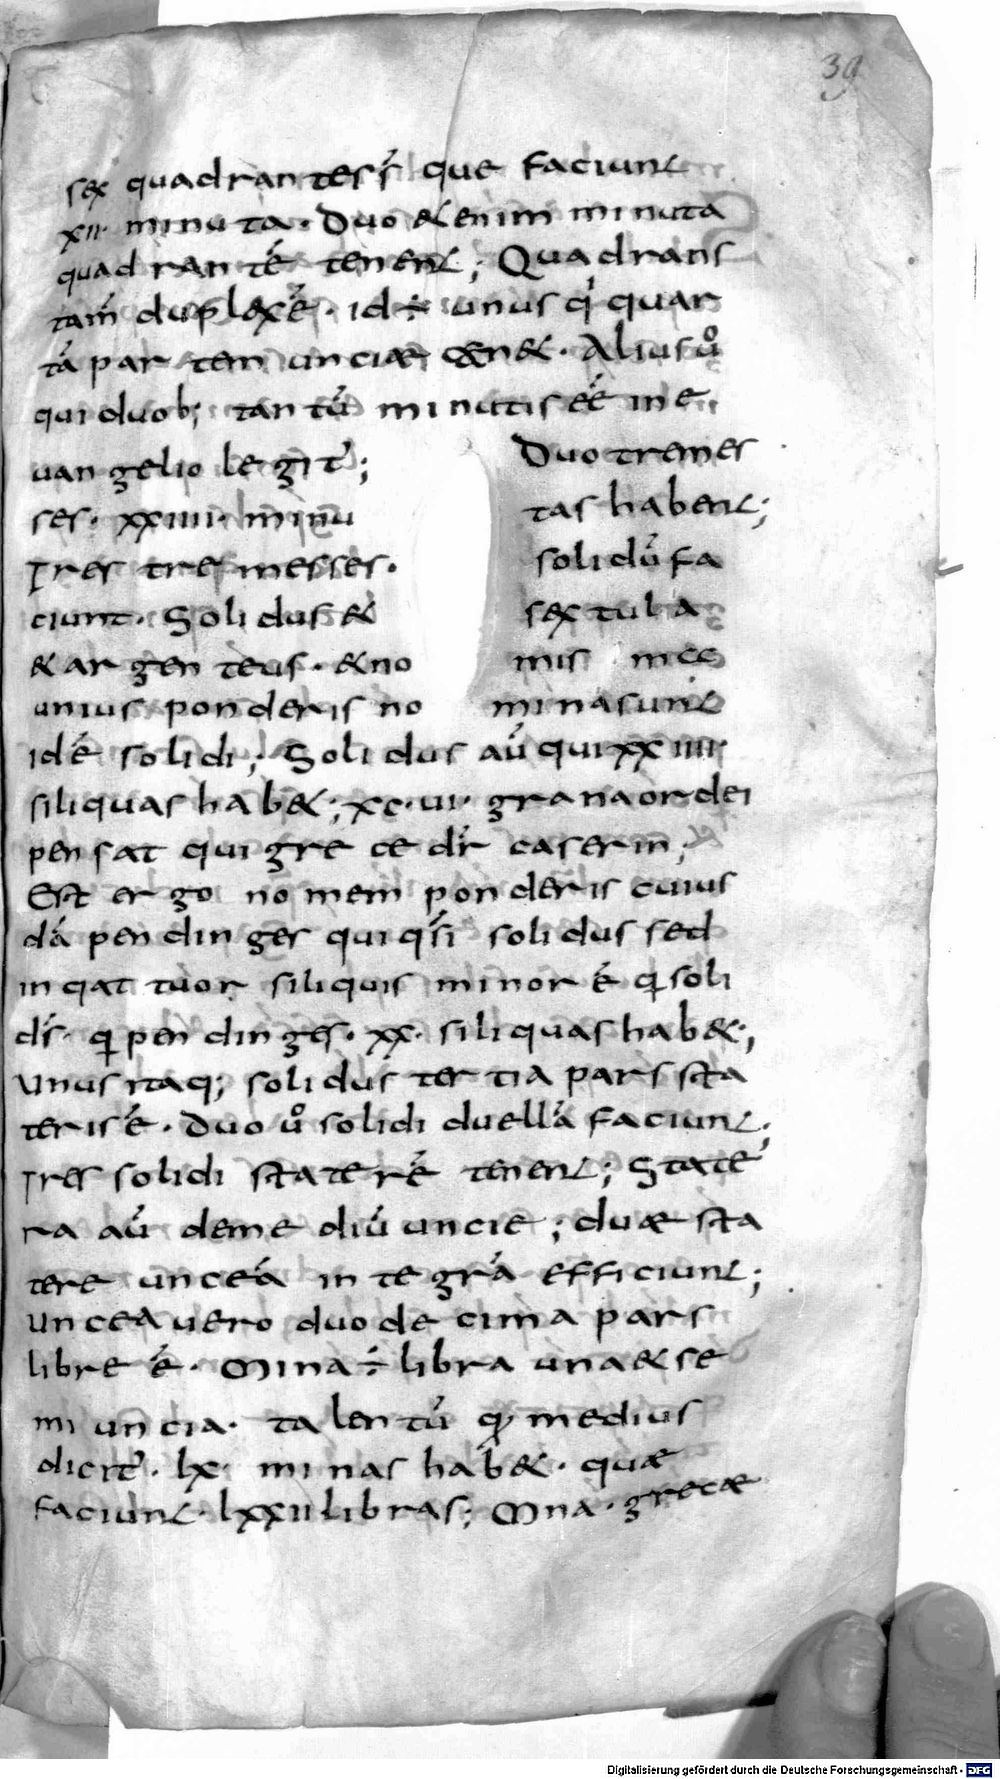 39
sex quadrantes s̄ que faciunt
xii· minuta· Duo & enim minuta
quadrantē tenent; Quadrans
tam̄ duplex ē· id ÷ unus q' quar
tā partem unciae ten&· Alius ů
qui duob; tantū minutis eē in e
uangelio legit̄; Duo tremes
ses· xxiiii· minu tas habent;
Tres tremesses· solidū fa
ciunt· Solidus & sextula
& argenteus· & no mis mee
unius ponderis no mina sunt
idē solidi; Solidus aū qui xxiiii·
siliquas hab&; xc·ui· grana ordei
pensat qui grece dr̄ caserin;
Est ergo nomem ponderis cuius
dā pendinges qui q̄si solidus sed
in qattuor siliquis minor ē q soli
ds̄· q pendinges· xx· siliquas hab&;
Unus itaq; solidus tertia pars sta
teris ē· Duo ů solidi duellā faciunt;
Tres solidi staterē tenent; State
ra aū deme diū uncie; duae sta
tere unceā integrā efficiunt;
Uncea uero duodecima pars
libre ē· Mina ÷ libra una & se
miuncia· talentū q medius
dicit̄· lx· minas hab&· quae
faciunt· lxxii libras; Mna· grecae
Digitalisierung gefördert durch die Deutsche Forschungsgemeinschaft - DFG